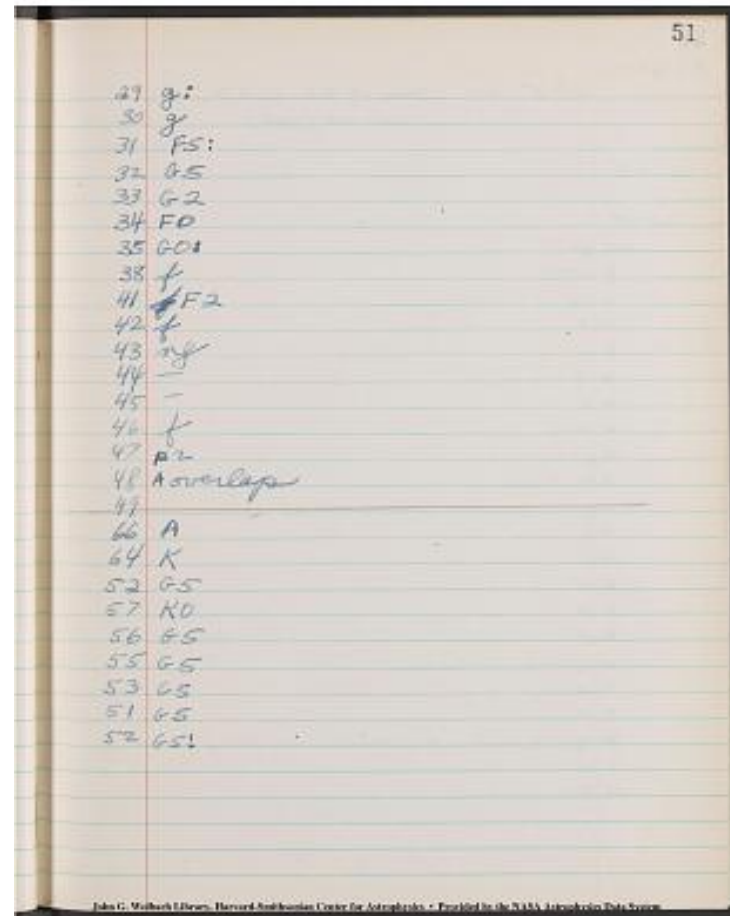 51
29 g:
30 g
31 F5:
32 G5
33 G2
34 F0
35 G0:
38 f
41 F2
42 f
43
44 —
45 —
46 f
47
48 A overlap
49
66 A
64 K
52 G5
57 K0
56 G5
55 G5
53 G5
51 G5
52 G5:
John G. Wolbach Library, Harvard-Smithsonian Center for Astrophysics • Provided by the NASA Astrophysics Data System